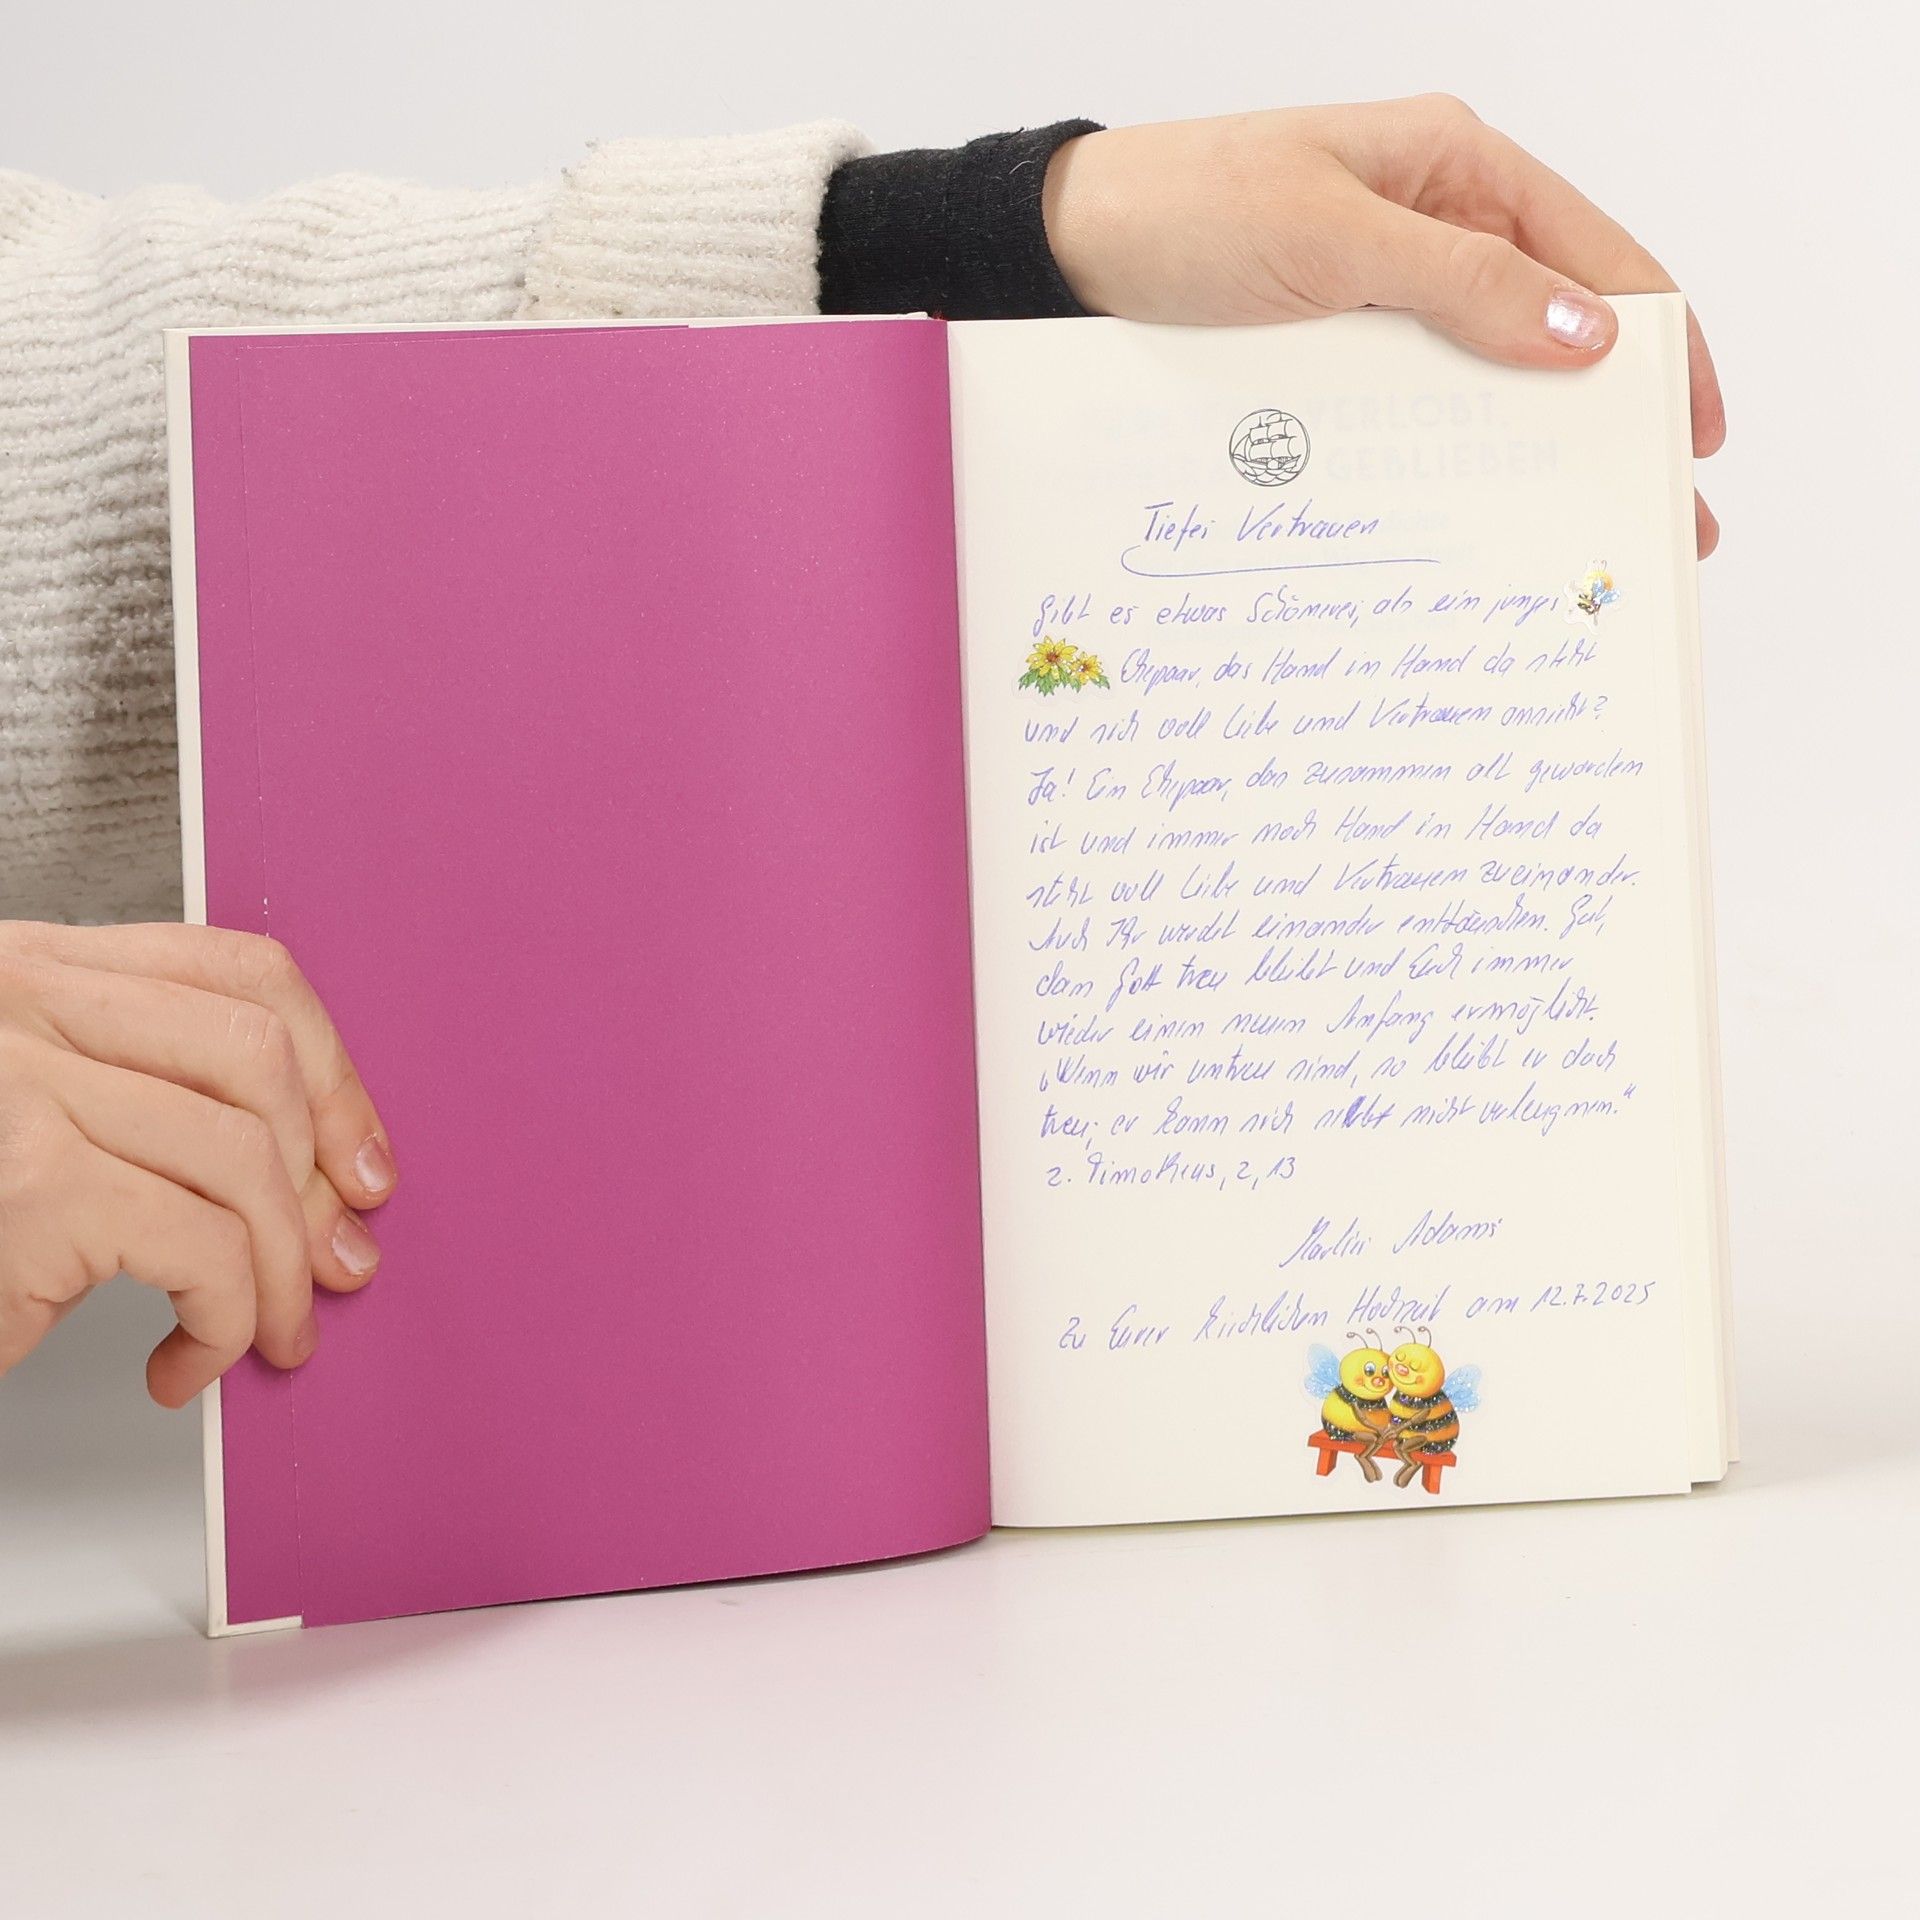 Tiefes Vertrauen
Gibt es etwas Schöneres, als ein junges
Ehepaar, das Hand in Hand da steht
und sich voll Liebe und Vertrauen ansieht?
Ja! Ein Ehepaar, das zusammen alt geworden
ist und immer noch Hand in Hand da
steht voll Liebe und Vertrauen zueinander.
Auch Ihr werdet einander enttäuschen. Gut,
dass Gott treu bleibt und Euch immer
wieder einen neuen Anfang ermöglicht.
„Wenn wir untreu sind, so bleibt er doch
treu; er kann sich selbst nicht verleugnen."
2. Timotheus, 2, 13
Adams
Zu Eurer kirchlichen Hochzeit am 12.7.2025